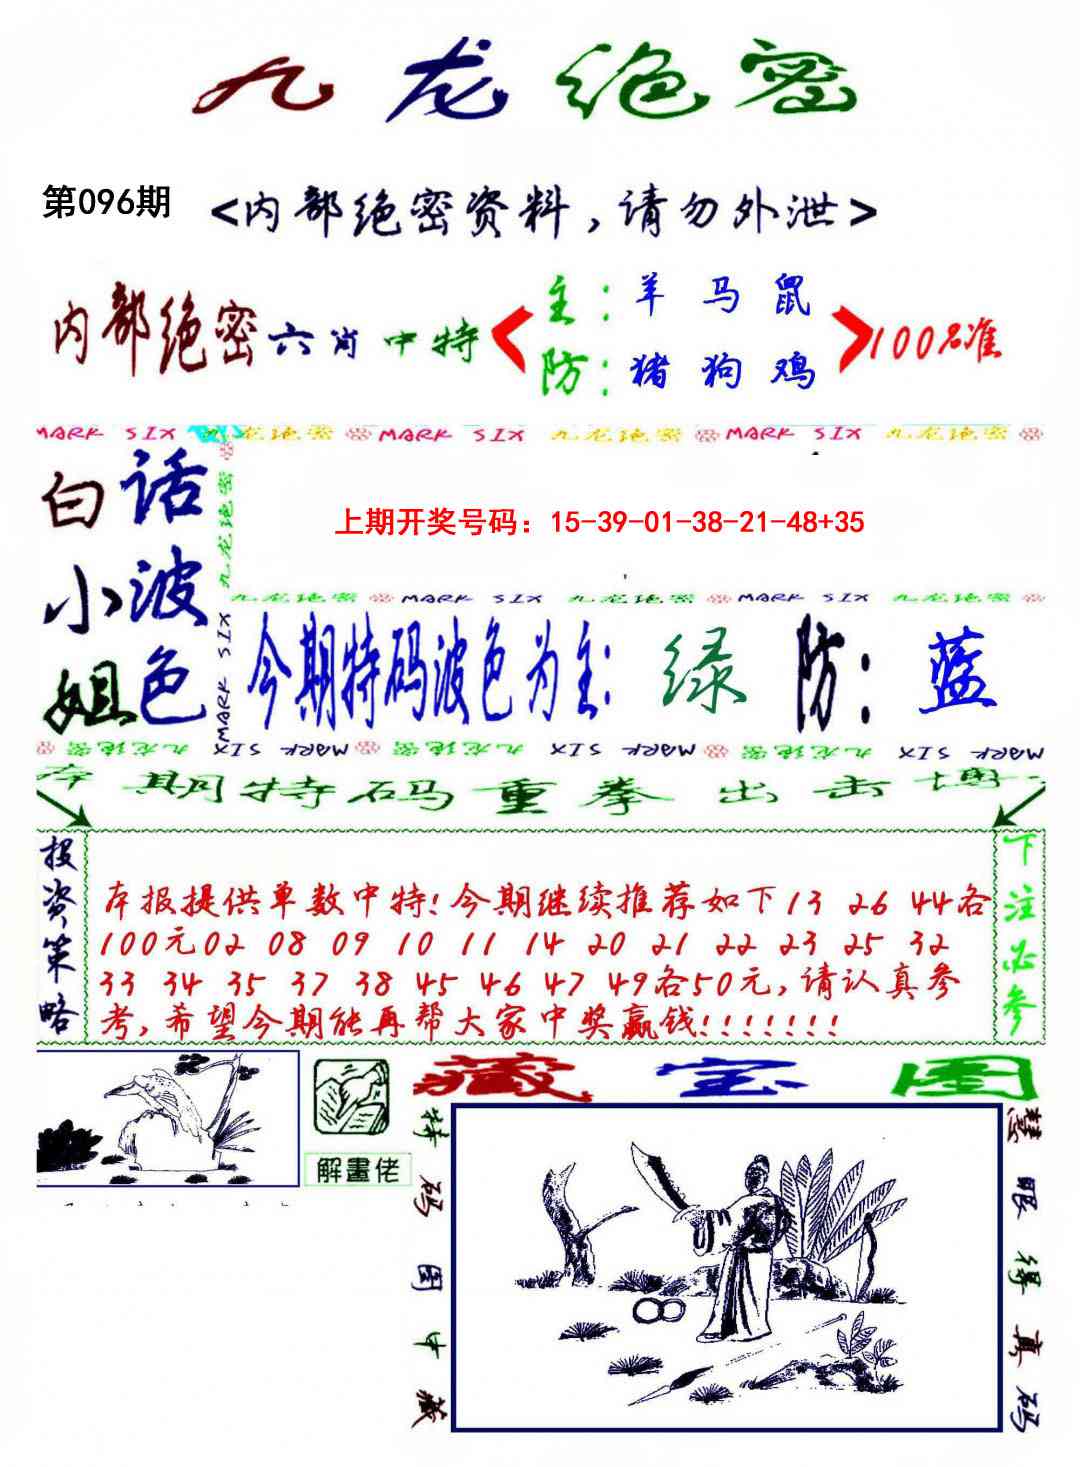 九龙绝密
第096期
<内部绝密资料,请勿外泄>
内部绝密六肖中特
主:羊 马 鼠
防:猪 狗 鸡
100%准
MARK SIX 九龙绝密 MARK SIX 九龙绝密 MARK SIX 九龙绝密
白话
小波
姐色
九龙绝密
MARK SIX
上期开奖号码：15-39-01-38-21-48+35
九龙绝密 MARK SIX 九龙绝密 MARK SIX 九龙绝密
今期特码波色为主: 绿 防: 蓝
九龙绝密 MARK SIX 九龙绝密 MARK SIX 九龙绝密 MARK SIX
本期特码重拳出击博
投资策略
本报提供单数中特!今期继续推荐如下13 26 44各
100元02 08 09 10 11 14 20 21 22 23 25 32
33 34 35 37 38 45 46 47 49各50元,请认真参
考,希望今期能再帮大家中奖赢钱!!!!!!!
下注必参
解畫佬
藏宝图
特码图中藏
慧眼得真码